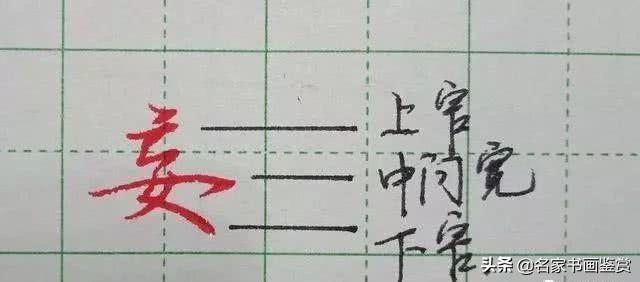 妄
上窄
中间宽
下窄
头条 @名家书画鉴赏